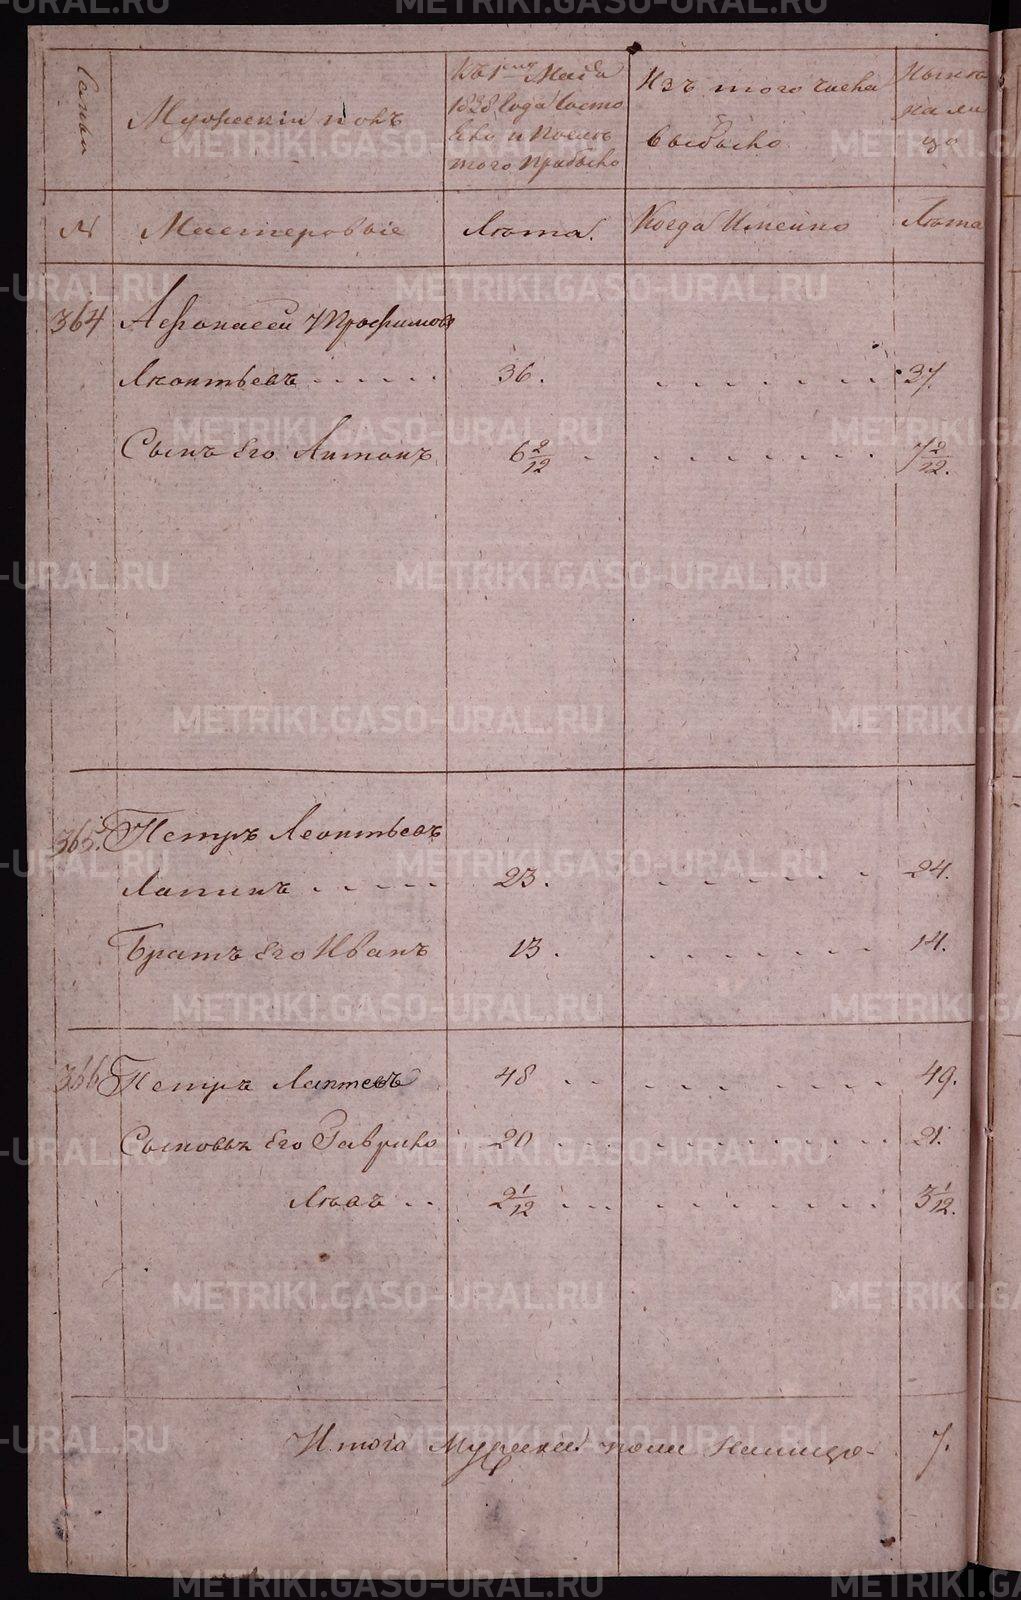 Семьи
Мужескiй полъ
Къ 1му Маiя
1838 года Состо
яло и После
того прибыло
Изъ того числа
выбыло
Нынѣ
на ли
цо
№
Мастеровые
Лѣта.
Когда Имѣнно
Лѣта
364 Афонасей Трофимовъ
Леонтьевъ 36. 37.
Сынъ Его Антонъ 6 2/12 7 2/12.
365. Петръ Леонтьевъ
Лапинъ 23. 24.
Братъ Его Иванъ 13. 14.
366 Петръ Лаптевъ 48 49.
Сыновья Его Гаврило 20 21.
Левъ 2 1/12 3 1/12.
Итого Мужеска пола Налицо 7.
METRIKI.GASO-URAL.RU